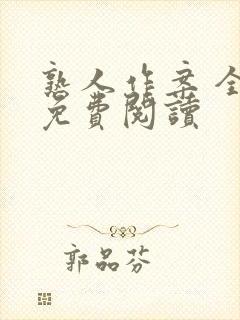 熟人作案全
免費閱讀
郭品芬